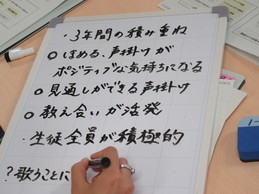 ・3年間の積み重ね
○ほめる、声掛けが
ポジティブな気持ちになる
○見通しができる声掛け
○教え合いが活発
・生徒全員が積極的
?歌うことに